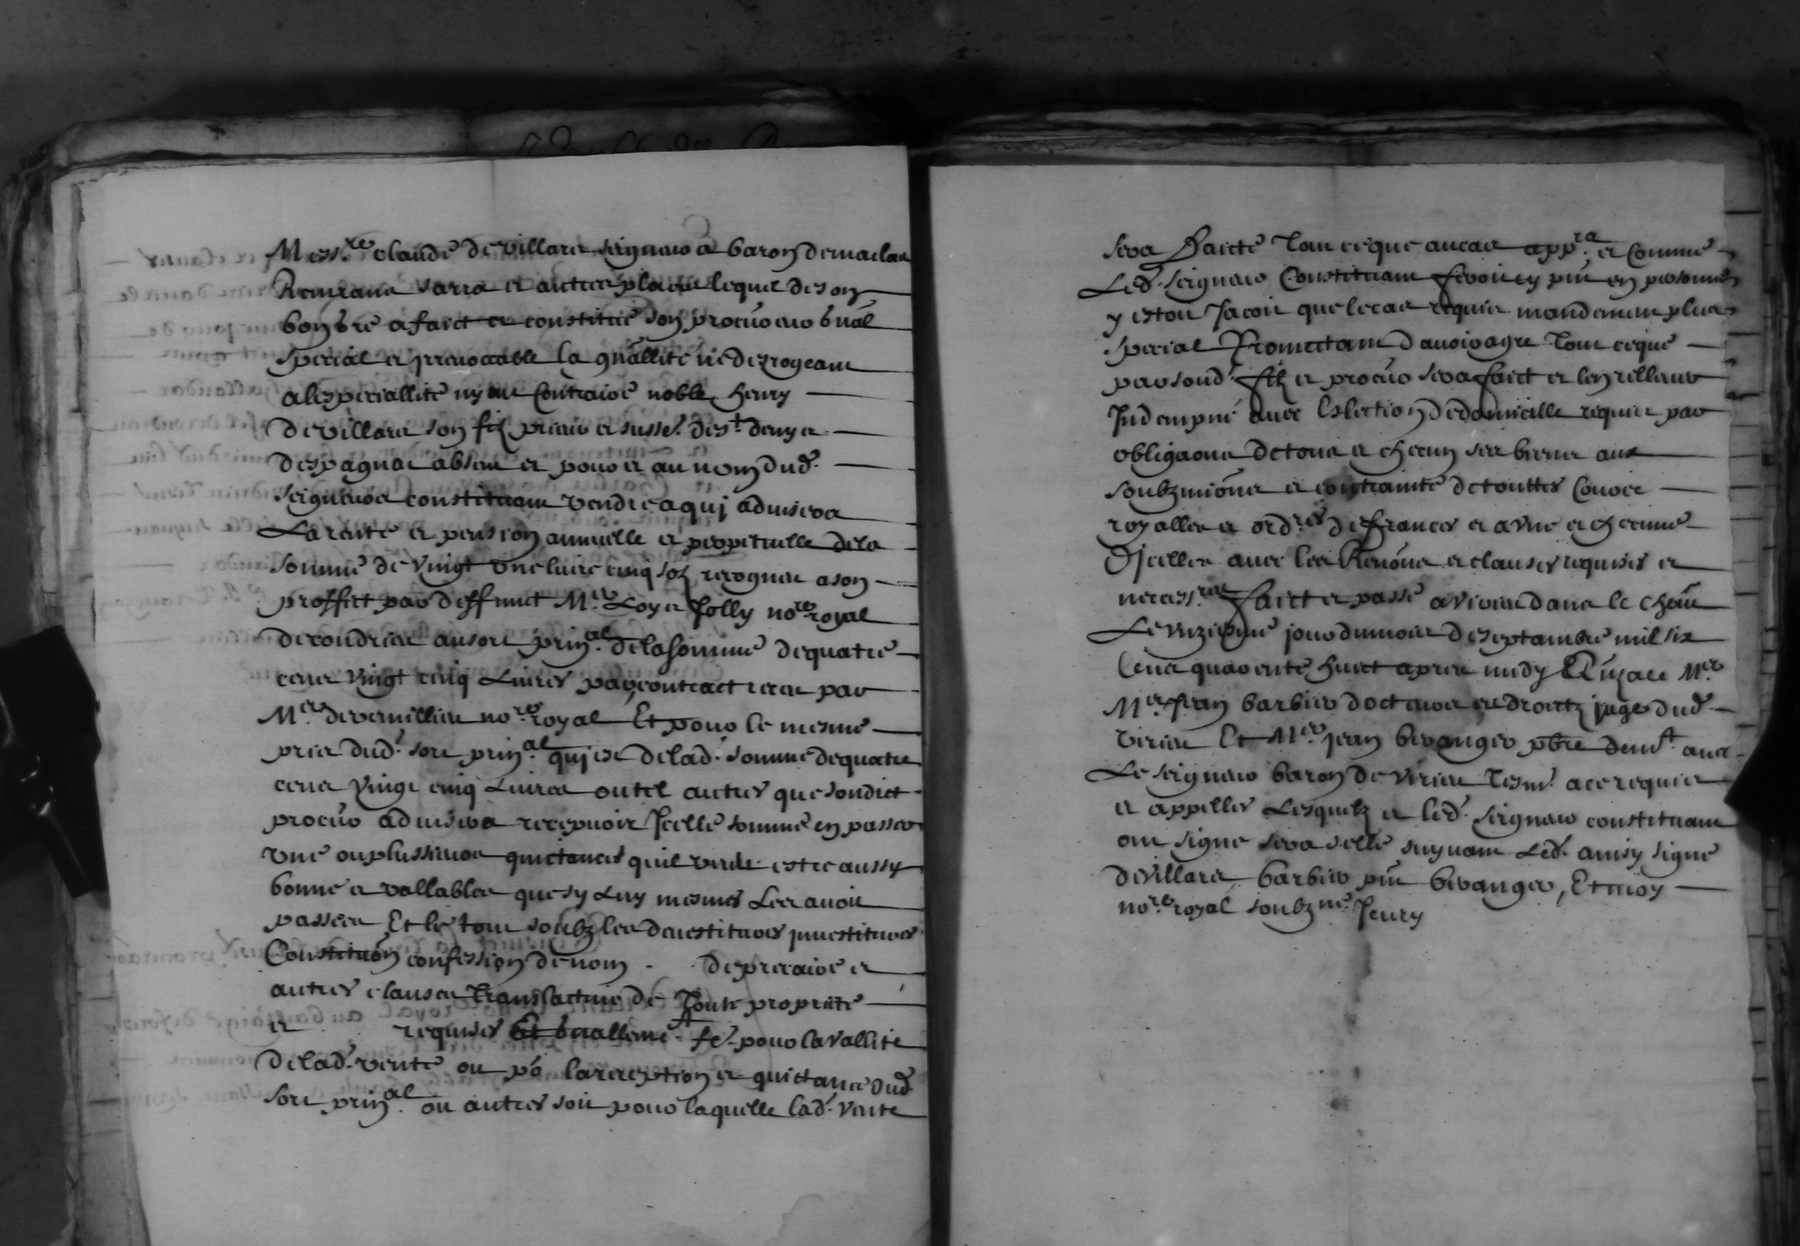 Mess.re claude de villars seigneur et baron de maclas
sarra et autres places lequel de son
bon gre a faict et constitué son procureur gnâl
special et irrevocable la gnâllité ne dezrogeant
a lespeciallité ny au contraire noble henry
de villars son filz prieur et de st denys
despagnac absent et pour et au nom dud.
seigneur constituant vendre a qui advisera
La rente et pension annuelle et perpetuelle de la
somme de vingt une livre cinq solz a son
proffict par deffunct M.re Loys Jolly no.re royal
de condrieu au sort prin.al de la somme de quatre
cens vingt cinq Livres par contract receu par
M.re no.re royal Et pour le mesme
pris dud. sort prin.al qui est de lad. somme de quatre
cens vingt cinq Livres ou tel autres que sondict
procur advisera recepvoir Jcelle somme en passer
une ou plussieurs quictances qui estre aussy
bonne et vallables que sy Luy mesmes Les avoit
passees Et le tout soubz les devestitures jnvestitures
Constituõn confession de nom . de precaire et
autres clauses de Toute proprieté
et requises pour la vallité
de lad. vente ou po la reception et quictance dud
sort prin.al ou autres soit pour laquelle lad. vente
sera Faicte Tout ce que au cas app.ra et comme
Led. seigneur Constituant feroit sy pnt en personne
y estoit Jacoit que le cas requis mandement plus
special Promectant davoir agre Tout ce que
par sond. filz et procur sera faict et len rellever
Jndempne avec Lelection de domicille requis par
obligaõns de tous et checun ses biens aux
soubzmiõns et contrainte de touttes Cours
royalles et ord.res de france et a une et checune
Djcelles avec les Renõns et clauses requises et
necess.res Faict et passé a virieu dans le chãu
Le unziesme jour du mois de septambre mil six
cens quarente huict apres midy M.re
M.re jean barbier docteur es droictz juge dud.
virieu Et M.re jean beranger pbre avec
Le seigneur baron de virieu Tesm. a ce requis
et appelles Lesquelz et led. seigneur constituant
ont signe Led. ainsy signe
de villars barbier pnt beranger, Et moy
no.re royal soubz.né Fleury